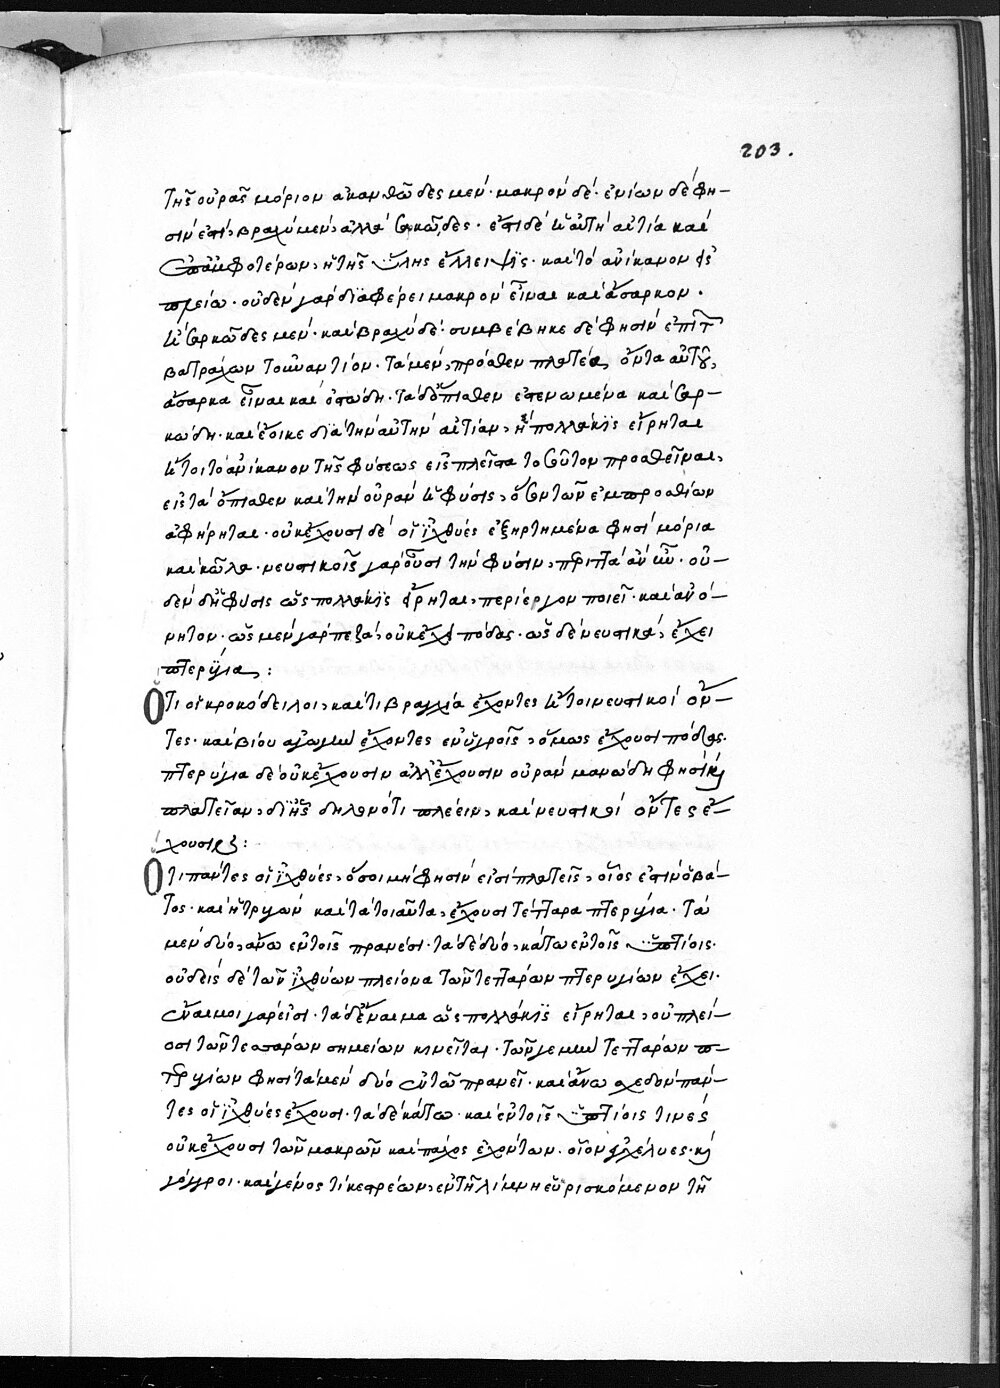 203.
τῆς οὐρᾶς μόριον ἀκανθῶδες μέν· μακρὸν δέ· ἐνίων δέ φη–
σὶν ἐστὶ, βραχὺ μὲν, ἀλλὰ σαρκῶδες· ἔστι δὲ ἡ αὐτὴ αἰτία καὶ
ἐπ' ἀμφοτέρων, ἡ τῆς ὕλης ἔλλειψις· καὶ τὸ ἀνίκανον εἰς
πλείω· οὐδὲν γὰρ διαφέρει μακρὸν εἶναι καὶ ἄσαρκον·
ἢ σαρκῶδες μέν· καὶ βραχὺ δέ· συμβέβηκε δέ φησὶν ἐπὶ τ
βατράχων τοὐναντίον· τὰ μὲν, πρόσθεν πλατέα, ὄντα αὐτοῦ,
ἄσαρκα εἶναι καὶ ὀστώδη· τὰ δ' ὄπισθεν ἐστενωμένα καὶ σαρ–
κώδη· καὶ ἔοικε διὰ τὴν αὐτὴν αἰτίαν, ἣ πολλάκις εἴρηται
ἤτοι τὸ ἀνίκανον τῆς φύσεως εἰς πλεῖστα τοσοῦτον προσθεῖναι,
εἰς τὰ ὄπισθεν καὶ τὴν οὐρὰν ἡ φύσις, ὅσον τῶν ἐμπροσθίων
ἀφήρηται· οὐκ ἔχουσι δὲ οἱ ἰχθύες ἐξηρτημένα φησὶ μόρια
καὶ κῶλα· νευστικοῖς γὰρ οὖσι τὴν φύσιν, περιττὰ ἂν ἦν· οὐ–
δὲν δὴ ἡ φύσις ὡς πολλάκις εἴρηται, περίεργον ποιεῖ· καὶ ἀνό–
νητον· ὡς μὲν γὰρ πεζὰ, οὐκ ἔχει πόδας· ὡς δὲ νευστικὰ, ἔχει
πτερύγια:
Ὅτι οἱ κροκόδειλοι, καὶ τὰ βραγχία ἔχοντες ἤτοι νευστικοὶ ὄν–
τες· καὶ βίου ἀγωγὴν ἔχοντες ἐν ὑγροῖς, ὅμως ἔχουσι πόδας·
πτερύγια δὲ οὐκ ἔχουσιν ἀλλ' ἔχουσιν οὐρὰν μανώδη φησὶ καὶ
πλατεῖαν, δι' ἧς δηλονότι πλέειν, καὶ νευστικοὶ ὄντες ἔ–
χουσι:
Ὅτι πάντες οἱ ἰχθύες, ὅσοι μὴ φησὶν εἰσὶ πλατεῖς, οἷός ἐστιν ὁ βά–
τος· καὶ ἡ τρυγὼν καὶ τὰ τοιαῦτα, ἔχουσι τέτταρα πτερύγια· τὰ
μὲν δύο, ἄνω ἐν τοῖς πρανέσι· τὰ δὲ δύο, κάτω ἐν τοῖς ὑπτίοις·
οὐδεὶς δὲ τῶν ἰχθύων πλείονα τῶν τεττάρων πτερυγίων ἔχει·
ἔναιμοι γάρ εἰσι· τὰ δ' ἔναιμα ὡς πολλάκις εἴρηται, οὐ πλεί–
οσι τῶν τεσσάρων σημείων κινεῖται· τῶν γε μὴν τεττάρων π–
τερυγίων φησὶ τὰ μὲν δύο ἐν τῷ πρανεῖ· καὶ ἄνω σχεδὸν πάν–
τες οἱ ἰχθύες ἔχουσι· τὰ δὲ κάτω· καὶ ἐν τοῖς ὑπτίοις τινὲς
οὐκ ἔχουσι τῶν μακρῶν καὶ πάχος ἐχόντων· οἷον αἱ ἐγχέλυες· καὶ
γόγγροι· καὶ γένος τι κεστρέων, ἐν τῇ λίμνῃ εὑρισκόμενον τῇ